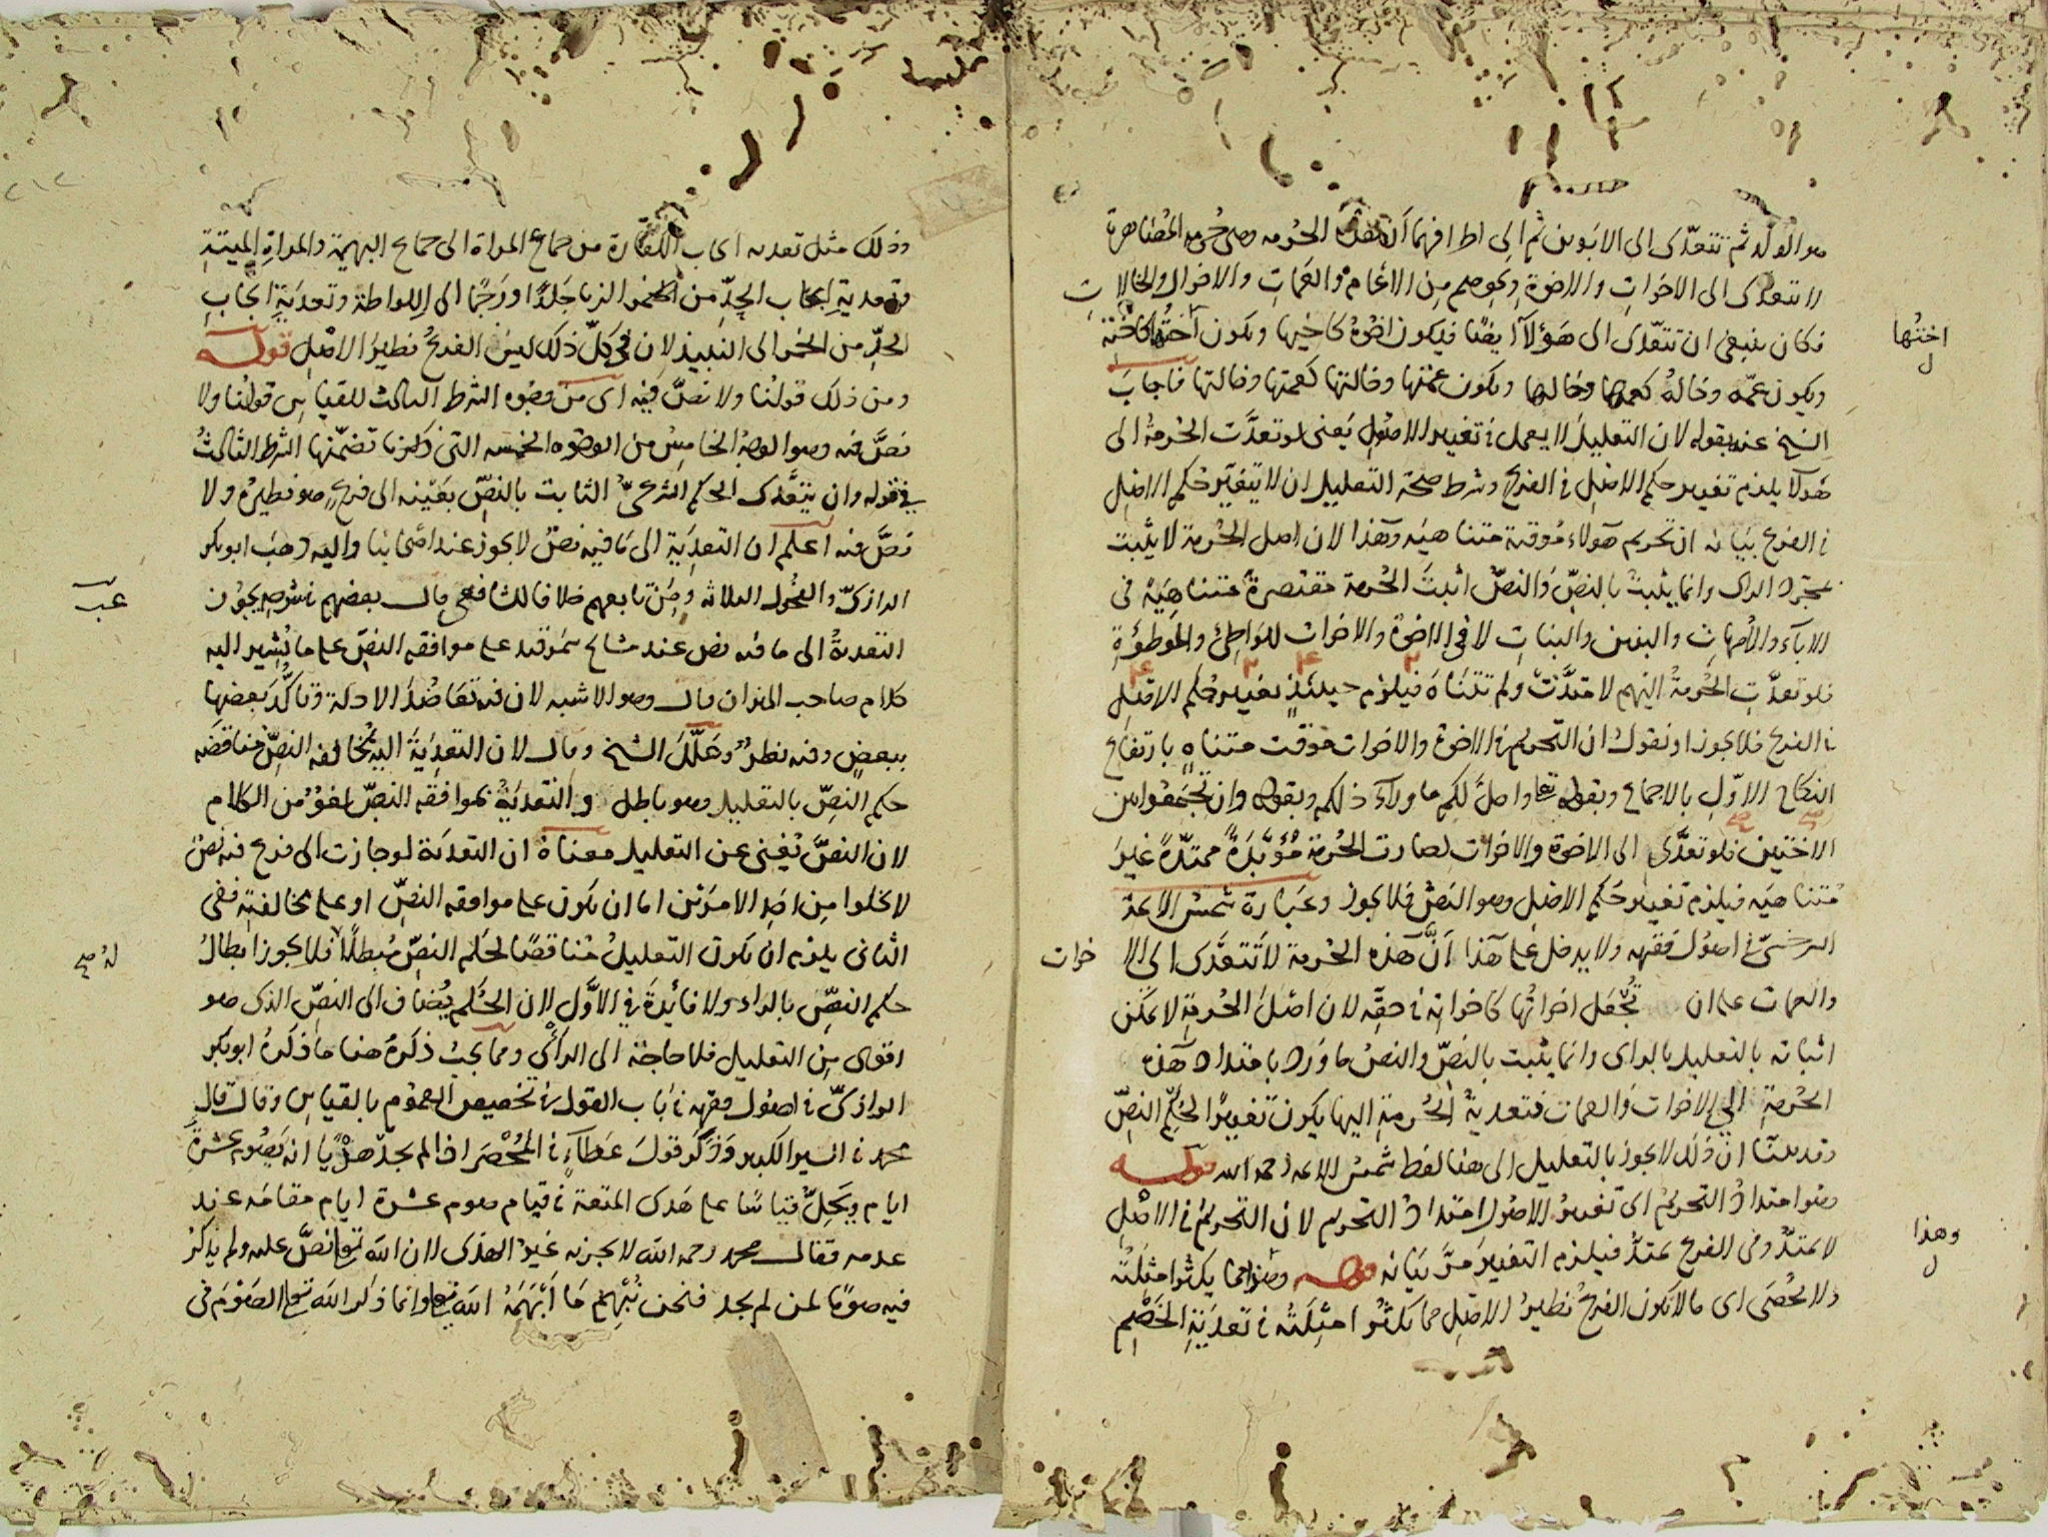 هو الولد ثم تتعدى الى الابوين ثم الى اطرافهما الحرمه وهى حرمه المصاهرة
لا تتعدى الى الاخوات والاخوة ونحوهم من الاعمام والعمات والاخوال والخالات
فكان ينبغى ان تتعدى الى هؤلآ ايضا فيكون اخوة كاخيها ويكون اخته كاختها
ويكون عمه وخاله كعمها وخالها ويكون عمتها وخالتها كعمتها وخالتها فاجاب
الشيخ عنه بقوله لان التعليل لا يعمل فى تغيير الاصول يعنى لو تعدت الحرمة الى
هولآ يلزم تغيير حكم الاصل فى الفرع وشرط صحة التعليل ان لا يتغير حكم الاصل
فى الفرع بيانه ان تحريم هولاء موقتة متناهيه وهذا لان اصل الحرمة لا يثبت
بمجرد الراى وانما يثبت بالنص والنص اثبت الحرمة مقتصرة متناهية فى
الابآء والامهات والبنين والبنات لا فى الاخوة والاخوات للواطئ والموطوءة
فلو تعدت الحرمة اليهم لامتدت ولم تتناه فيلزم حينئذ تغيير حكم الاصل
فى الفرع فلا يجوز او نقول ان التحريم فى الاخوة والاخوات موقت متناه بارتفاع
النكاح الاول بالاجماع وبقوله تعا واحل لكم ما ورآء ذلكم وبقوله وان تجمعوا بين
الاختين فلو تعدى الى الاخوة والاخوات لصارت الحرمة مؤبدة ممتدة غير
متناهيه فيلزم تغيير حكم الاصل وهو النص فلا يجوز وعبارة شمس الائمة
السرخسى فى اصول فقهه ولا يدخل على هذا ان هذه الحرمة لا تتعدى الى الا خوات
والعمات على ان تجعل اخواتها كاخواته فى حقه لان اصل الحرمة لا يمكن
اثباته بالتعليل بالراى وانما يثبت بالنص والنص ما ورد بامتداد هذه
الحرمة الى الاخوات والعمات فتعدية الحرمة اليها يكون تغييرا لحكم النص
وقد بينا ان ذلك لا يجوز بالتعليل الى هنا لفظ شمس الائمه رحمه الله قوله
وهو امتداد التحريم اى تغيير الاصول امتداد التحريم لان التحريم فى الاصل
لا يمتد وفى الفرع يمتد فيلزم التغيير مر بيانه قوله وهذا مما يكثر امثلته
ولا يحصى اى مالا يكون الفرع نظير الاصل مما يكثر امثلته فى تعدية الخصم
اختها
ل
وهذا
ل
وذلك مثل تعديه ايجاب الكفارة من جماع المراة الى جماع البهيمة والمراة الميتة
وتعدية ايجاب الحد من الزنا جلدا او رجما الى اللواطة وتعدية ايجاب
الحد من الخمر الى النبيذ لان فى كل ذلك ليس الفرع نظير الاصل قوله
ومن ذلك قولنا ولا نص فيه اى من وجوه الشرط الثالث للقياس قولنا ولا
نص فيه وهو الوجه الخامس من الوجوه الخمسه التى ذكرنا تضمنها الشرط الثالث
فى قوله وان يتعدى الحكم الشرعى الثابت بالنص بعينه الى فرع هو نظيره ولا
نص فيه اعلم ان التعدية الى ما فيه نص لا يجوز عند اصحابنا واليه ذهب ابو بكر
الرازى والفحول الثلاثه ومن تابعهم خلافا للشافعى قال بعضهم يجوز
التعدية الى ما فيه نص عند مشايخ سمرقند على موافقه النص على ما يشير اليه
كلام صاحب الميزان قال وهو الاشبه لان فيه تعاضد الادلة وتاكد بعضها
ببعض وفيه نظر وعلل الشيخ وقال لان التعدية اليه بمخالفه النص مناقضه
حكم النص بالتعليل وهو باطل والتعدية بموافقه النص لغو من الكلام
لان النص يغنى عن التعليل معناه ان التعدية لو جازت الى فرع فيه نص
لا يخلوا من احد الامرين اما ان يكون على موافقه النص او على مخالفته ففى
الثانى يلزم ان يكون التعليل مناقضا لحكم النص مبطلا فلا يجوز ابطال
حكم النص بالراى ولا فائدة فى الاول لان الحكم يضاف الى النص الذى هو
اقوى من التعليل فلا حاجة الى الراى ومما يجب ذكره هنا ما ذكره ابو بكر
الرازى فى اصول فقهه فى باب القول فى تخصيص العموم بالقياس وقال قال
محمد فى السير الكبير وذكر قول عطآء فى المحصر اذا لم يجد هديا انه يصوم عشرة
ايام ويحل قياسا على هدى المتعة فى قيام صوم عشرة ايام مقامه عند
عدمه فقال محمد رحمه الله لا يجزيه غير الهدى لان الله تعا نص عليه ولم يذكر
فيه صوما لمن لم يجد فنحن نبهم ما ابهمه الله تعا وانما ذكر الله تعا الصوم فى